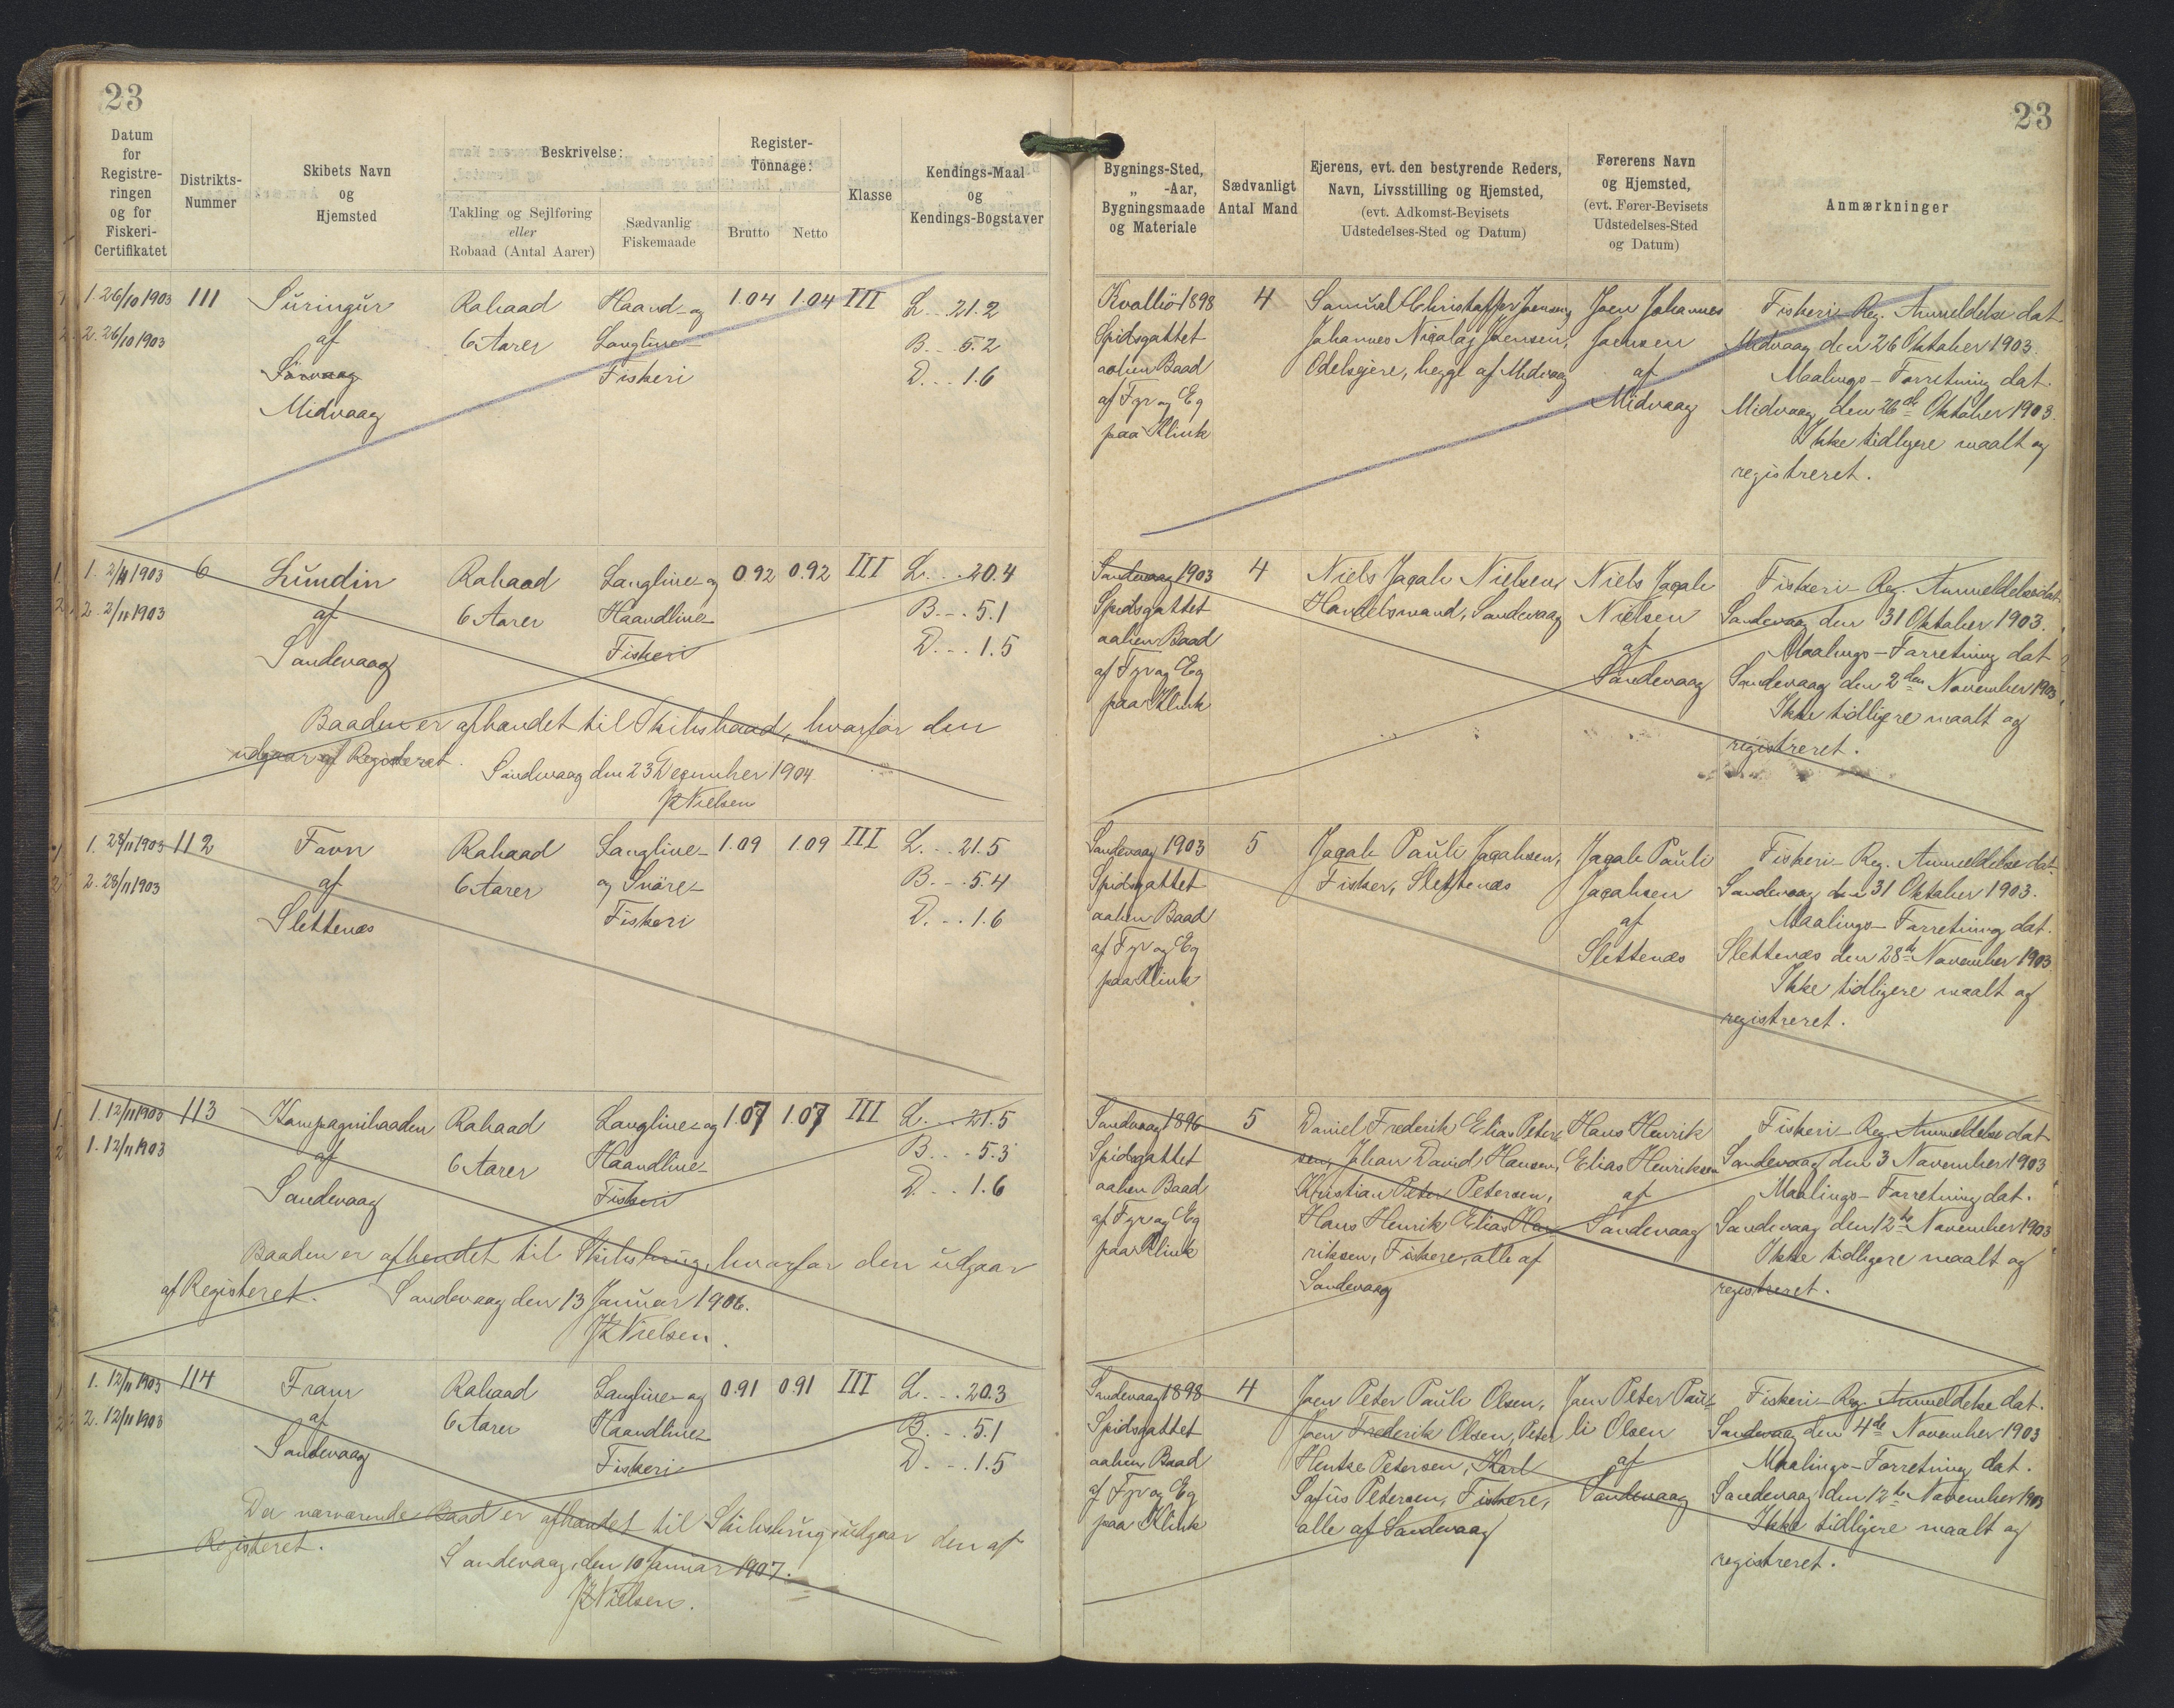 23
23
Datum
for
Registre-
ringen
og for
Fiskeri-
Certifikatet
Distrikts-
Nummer
Skibets Navn
og
Hjemsted
Beskrivelse:
Takling og Sejlføring
eller
Robaad (Antal Aarer)
Sædvanlig
Fiskemaade
Register-
Tonnage:
Brutto
Netto
Klasse
Kendings-Maal
og
Kendings-Bogstaver
Bygnings-Sted,
„ -Aar,
Bygningsmaade
og Materiale
Sædvanligt
Antal Mand
Ejerens, evt. den bestyrende Reders,
Navn, Livsstilling og Hjemsted,
(evt. Adkomst-Bevisets
Udstedelses-Sted og Datum)
Førerens Navn
og Hjemsted,
(evt. Fører-Bevisets
Udstedelses-Sted
og Datum)
Anmærkninger
1. 26/10 1903
2. 26/10 1903
111
Suringur
af
Sörvaag
Midvaag
Robaad
6 Aarer
Haand- og
Langline-
Fiskeri
1.04
1.04
III
L. .. 21.2
B. .. 5.2
D. .. 1.6
1898
Spidsgattet
aaben Baad
af Fyr og Eg
paa Klink
4
Samuel Christoffer Joensen,
Johannes Nicolaj Joensen,
Odelsejere, begge af Midvaag
Joen Johannes
Joensen
af
Midvaag
Fiskeri-Reg. Anmeldelse dat
Midvaag den 26 Oktober 1903.
Maalings-Forretning dat.
Midvaag den 26de Oktober 1903.
Ikke tidligere maalt og
registreret.
1. 2/11 1903
2. 2/11 1903
6
Lundin
af
Sandevaag
Robaad
6 Aarer
Langline- og
Haandline-
Fiskeri
0.92
0.92
III
L. .. 20.4
B. .. 5.1
D. .. 1.5
Baaden er afhændet til Skibsbaad, hvorfor den
udgaar af Registeret.
Sandevaag den 23 December 1904.
JNielsen
Sandevaag 1903
Spidsgattet
aaben Baad
af Fyr og Eg
paa Klink
4
Niels Jacob Nielsen,
Handelsmand, Sandevaag
Niels Jacob
Nielsen
af
Sandevaag
Fiskeri-Reg. Anmeldelse dat
Sandevaag den 31 Oktober 1903.
Maalings-Forretning dat
Sandevaag den 2den November 1903
Ikke tidligere maalt og
registreret.
1. 28/11 1903
2. 28/11 1903
112
Favn
af
Slettenæs
Robaad
6 Aarer
Langline-
og Snöre-
Fiskeri
1.09
1.09
III
L. .. 21.5
B. .. 5.4
D. .. 1.6
Sandevaag 1903
Spidsgattet
aaben Baad
af Fyr og Eg
paa Klink
5
Jacob Pauli Jacobsen,
Fisker, Slettenæs
Jacob Pauli
Jacobsen
af
Slettenæs
Fiskeri-Reg. Anmeldelse dat.
Sandevaag den 31 Oktober 1903.
Maalings-Forretning dat.
Slettenæs den 28de November 1903
Ikke tidligere maalt og
registreret.
1. 12/11 1903
1. 12/11 1903
113
Kompagnibaaden
af
Sandevaag
Robaad
6 Aarer
Langline- og
Haandline-
Fiskeri
1.07
1.07
III
L. .. 21.5
B. .. 5.3
D. .. 1.6
Baaden er afhændet til Skibsbrug, hvorfor den udgaar
af Registeret. Sandevaag den 13 Januar 1906.
JNielsen.
Sandevaag 1896
Spidsgattet
aaben Baad
af Fyr og Eg
paa Klink
5
Daniel Frederik Elias Peter-
sen, Johan David Hansen,
Kristian Peter Petersen,
Hans Henrik Elias Hen-
riksen, Fiskere, alle af
Sandevaag
Hans Henrik
Elias Henriksen
af
Sandevaag
Fiskeri-Reg. Anmeldelse dat
Sandevaag den 3 November 1903
Maalings-Forretning dat.
Sandevaag den 12te November 1903
Ikke tidligere maalt og
registreret.
1. 12/11 1903
2. 12/11 1903
114
Fram
af
Sandevaag
Robaad
6 Aarer
Langline- og
Haandline-
Fiskeri
0.91
0.91
III
L. .. 20.3
B. .. 5.1
D. .. 1.5
Da nærværende Baad er afhændet til Skibsbrug, udgaar den af
Registeret.
Sandevaag, den 10 Januar 1907.
JNielsen.
Sandevaag 1898
Spidsgattet
aaben Baad
af Fyr og Eg
paa Klink
4
Joen Peter Pauli Olsen,
Joen Frederik Olsen, Peter
Hentse Petersen, Karl
Sofus Petersen, Fiskere,
alle af Sandevaag
Joen Peter Pau-
li Olsen
af
Sandevaag
Fiskeri-Reg. Anmeldelse dat.
Sandevaag den 4de November 1903
Maalings-Forretning dat.
Sandevaag den 12te November 1903
Ikke tidligere maalt og
registreret.